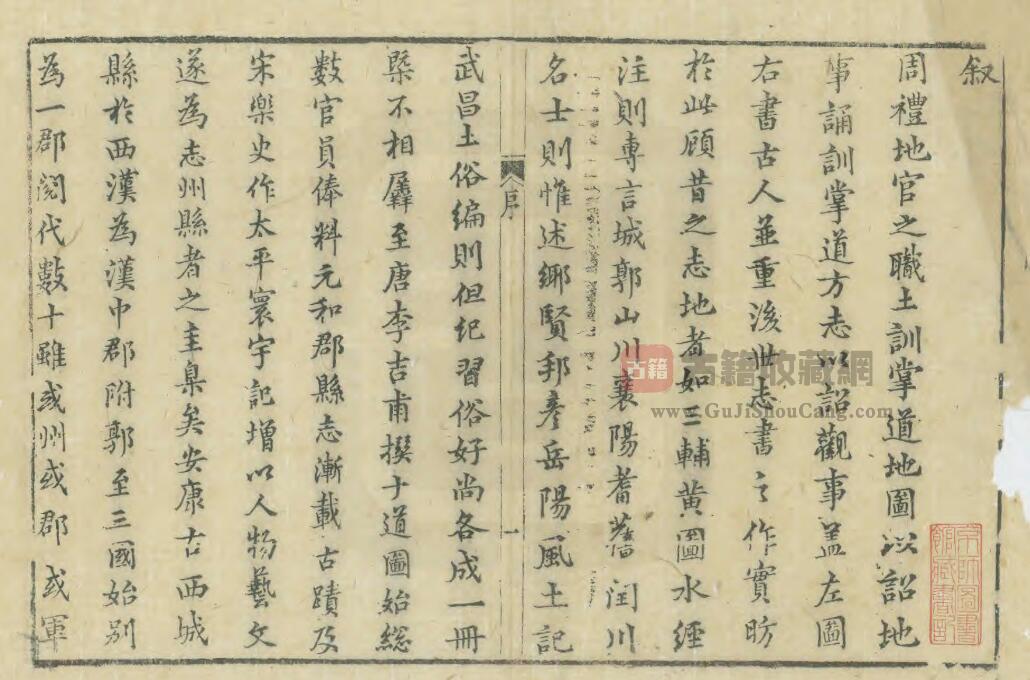 叙
周禮地官之職土訓掌道地圖以詔地
事誦訓掌道方志以詔觀事盖左圖
右書古人並重後世志書之作實昉
於此顧昔之志地者如三輔黃圖水經
注則專言城郭山川襄陽耆舊閏川
名士則惟述鄉賢邦彥岳陽風土記
序
一
武昌土俗編則但紀習俗好尚各成一冊
槩不相羼至唐李吉甫撰十道圖始総
數官員俸料元和郡縣志漸載古蹟及
宋樂史作太平寰宇記增以人物藝文
遂為志州縣者之圭臬矣安康古西城
縣於西漢為漢中郡附郭至三國始別
為一郡閱代數十雖或州或郡或軍
古籍 古籍收藏網
www.GuJiShouCang.com